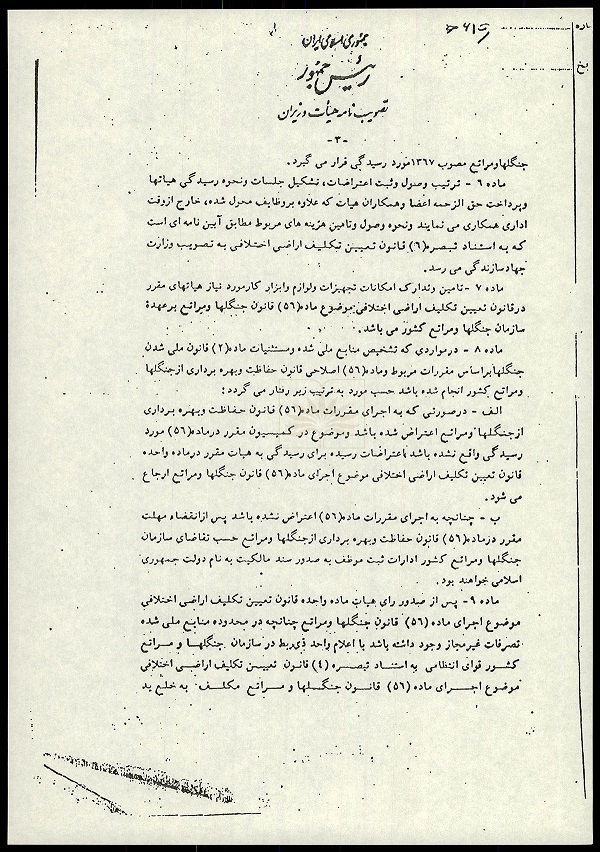 جمهوری اسلامی ایران
رئیس جمهور
تصویب نامه هیأت وزیران
-۳-
جنگلهاومراتع مصوب ۱۳۶۷مورد رسیدگی قرار می گیرد.
ماده ۶ - ترتیب وصول وثبت اعتراضات، تشکیل جلسات ونحوه رسیدگی هیاتها
وپرداخت حق الزحمه اعضا وهمکاران هیات که علاوه بروظایف محول شده، خارج ازوقت
اداری همکاری می نمایند ونحوه وصول وتامین هزینه های مربوط مطابق آیین نامه ای است
که به استناد تبصره(۶) قانون تعیین تکلیف اراضی اختلافی به تصویب وزارت
جهادسازندگی می رسد.
ماده ۷ -تامین وتدارک امکانات تجهیزات ولوازم وابزار کارمورد نیاز هیاتهای مقرر
درقانون تعیین تکلیف اراضی اختلافی موضوع ماده(۵۶) قانون جنگلها ومراتع برعهدة
سازمان جنگلها ومراتع کشور می باشد.
ماده ۸ - درمواردی که تشخیص منابع ملی شده ومستثنیات ماده(۲) قانون ملی شدن
جنگلهابراساس مقررات مربوط وماده(۵۶) اصلاحی قانون حفاظت وبهره برداری ازجنگلها
ومراتع کشور انجام شده باشد حسب مورد به ترتیب زیر رفتار می گردد:
الف - درصورتی که به اجرای مقررات ماده(۵۶) قانون حفاظت وبهره برداری
ازجنگلها ومراتع اعتراض شده باشد وموضوع در کمیسیون مقرر درماده(۵۶) مورد
رسیدگی واقع نشده باشد اعتراضات رسیده برای رسیدگی به هیات مقرر درماده واحده
قانون تعیین تکلیف اراضی اختلافی موضوع اجرای ماده(۵۶) قانون جنگلها ومراتع ارجاع
می شود.
ب - چنانچه به اجرای مقررات ماده(۵۶) اعتراض نشده باشد پس ازانقضاء مهلت
مقرر درماده(۵۶) قانون حفاظت وبهره برداری ازجنگلها ومراتع حسب تقاضای سازمان
جنگلها ومراتع کشور ادارات ثبت موظف به صدور سند مالکیت به نام دولت جمهوری
اسلامی خواهند بود.
ماده ۹- پس از صدور رای هیات ماده واحده قانون تعیین تکلیف اراضی اختلافی
موضوع اجرای ماده (۵۶) قانون جنگلها ومراتع چنانچه در محدوده منابع ملی شده
تصرفات غیرمجاز وجود داشته باشد با اعلام واحد ذی‌ربط در سازمان جنگلها و مراتع
کشور قوای انتظامی به استناد تبصره (۴) قانون تعیین تکلیف اراضی اختلافی
موضوع اجرای ماده (۵۶) قانون جنگلها و مراتع مکلف به خلع ید